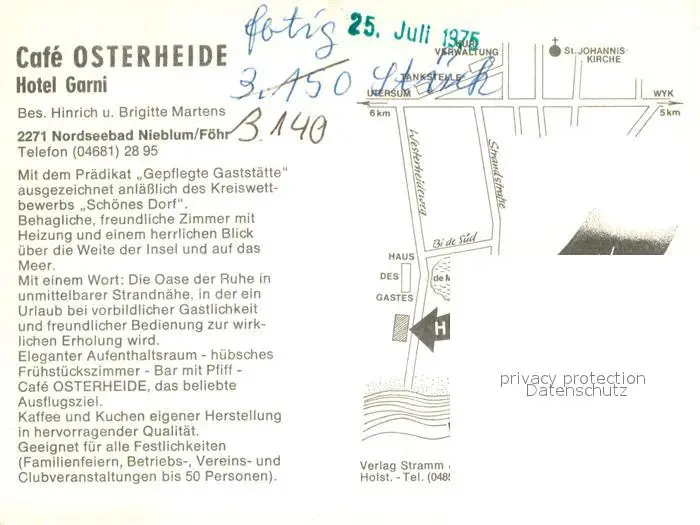 fertig
25. Juli 1975
3.150 Stück
3.140
Café OSTERHEIDE
Hotel Garni
Bes. Hinrich u. Brigitte Martens
2271 Nordseebad Nieblum/Föhr
Telefon (04681) 28 95
Mit dem Prädikat „Gepflegte Gaststätte"
ausgezeichnet anläßlich des Kreiswett-
bewerbs „Schönes Dorf".
Behagliche, freundliche Zimmer mit
Heizung und einem herrlichen Blick
über die Weite der Insel und auf das
Meer.
Mit einem Wort: Die Oase der Ruhe in
unmittelbarer Strandnähe, in der ein
Urlaub bei vorbildlicher Gastlichkeit
und freundlicher Bedienung zur wirk-
lichen Erholung wird.
Eleganter Aufenthaltsraum - hübsches
Frühstückszimmer - Bar mit Pfiff -
Café OSTERHEIDE, das beliebte
Ausflugsziel.
Kaffee und Kuchen eigener Herstellung
in hervorragender Qualität.
Geeignet für alle Festlichkeiten
(Familienfeiern, Betriebs-, Vereins- und
Clubveranstaltungen bis 50 Personen).
KUR-
VERWALTUNG
ST. JOHANNIS-
KIRCHE
TANKSTELLE
UTERSUM
6 km
WYK
5 km
Westerheideweg
Strandstraße
Bi de Süd
HAUS
DES
GASTES
de M
H
privacy protection
Datenschutz
Verlag Stramm
Holst. - Tel. (048